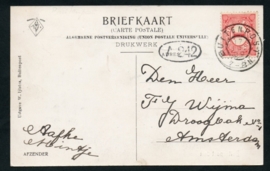 BRIEFKAART
(CARTE POSTALE)
ALGEMEENE POSTVEREENIGING (UNION POSTALE UNIVERSELLE)
DRUKWERK
BUITENPOST
Den Heer
F. Wijma
Droogbak
Amsterdam
Aafke
Mintje
AFZENDER